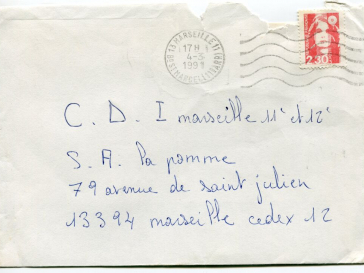 13 MARSEILLE 11
17H
4-5
1991
2,30
C. D. I marseille 11e et 12e
S. A. La pomme
79 avenue de saint julien
13394 marseille cedex 12